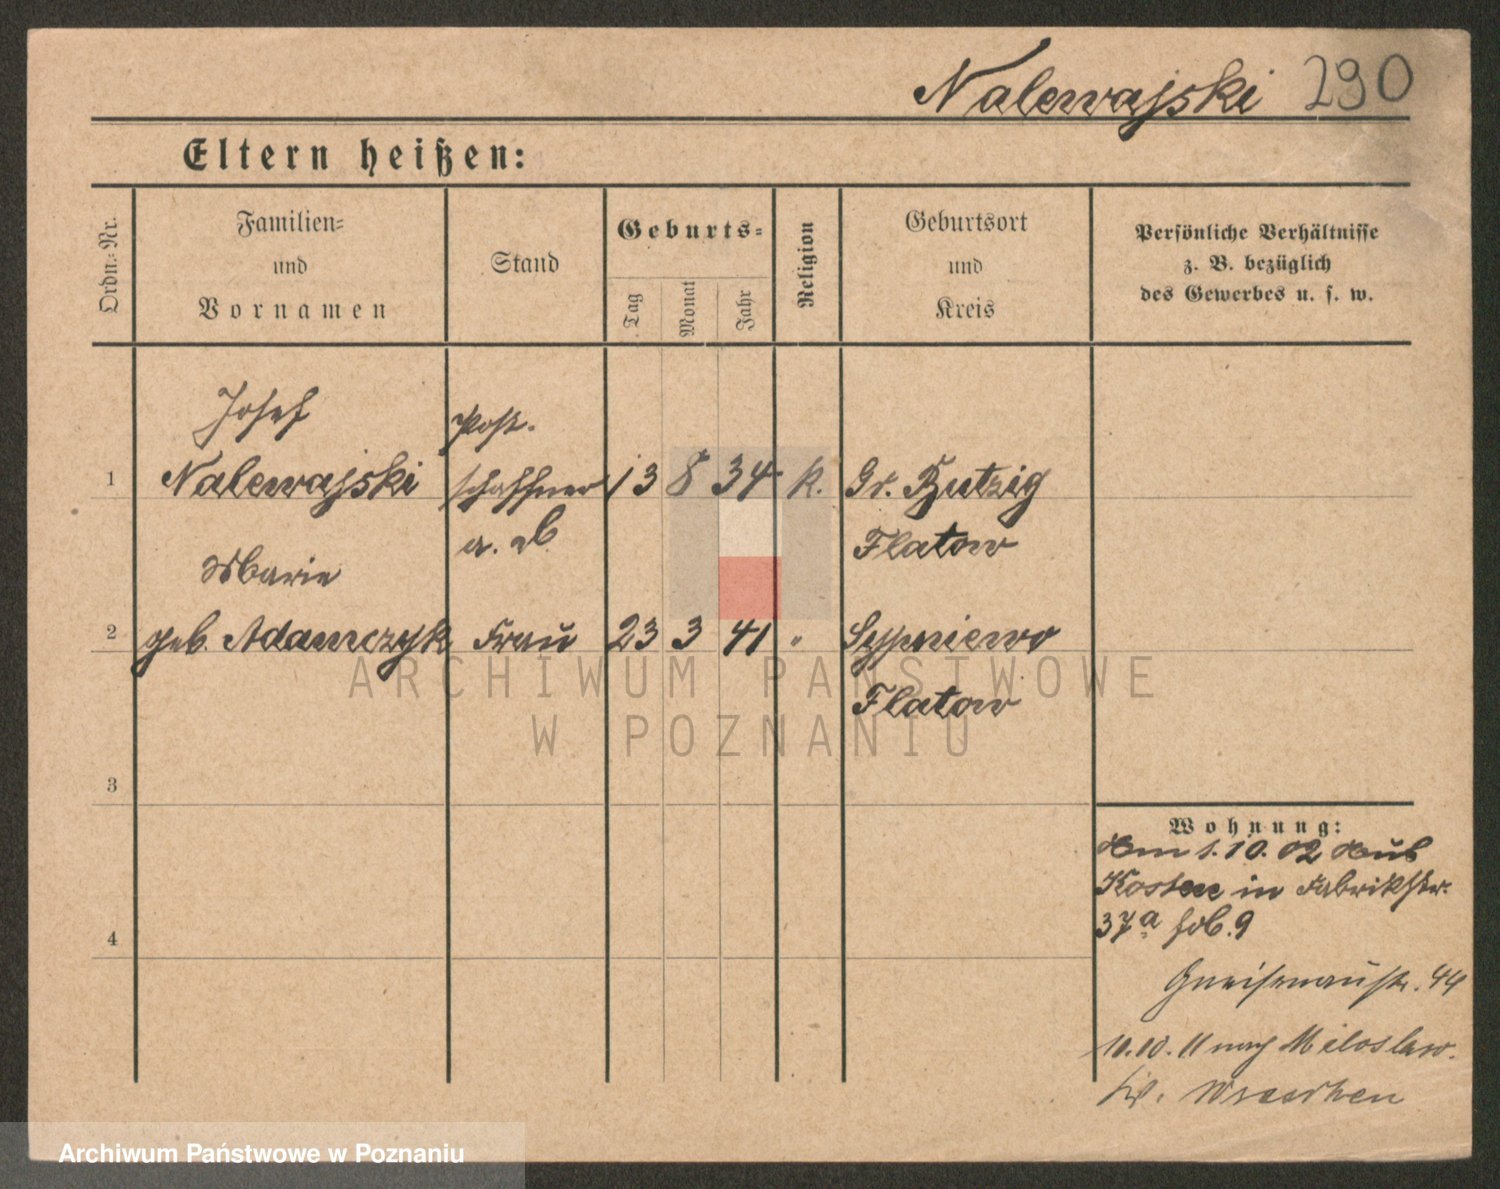 Nalewajski 290
Eltern heißen:
Ordn.-Nr.
Familien-
und
Vornamen
Stand
Geburts-
Tag
Monat
Jahr
Religion
Geburtsort
und
Kreis
Persönliche Verhältnisse
z. B. bezüglich
des Gewerbes u. s. w.
Josef
Post-
1 Nalewajski schaffner 13 8 34 k. Gr. Butzig
a. D. Flatow
Marie
2 geb. Adamczyk Frau 23 3 41 " Sypniewo
Flatow
ARCHIWUM PAŃSTWOWE
W POZNANIU
3
Wohnung:
Am 1.10.02 aus
Kosten in Fabrikstr.
37a
4
Gneisenaustr. 44
10.10.11 nach Miloslaw.
Wreschen
Archiwum Państwowe w Poznaniu